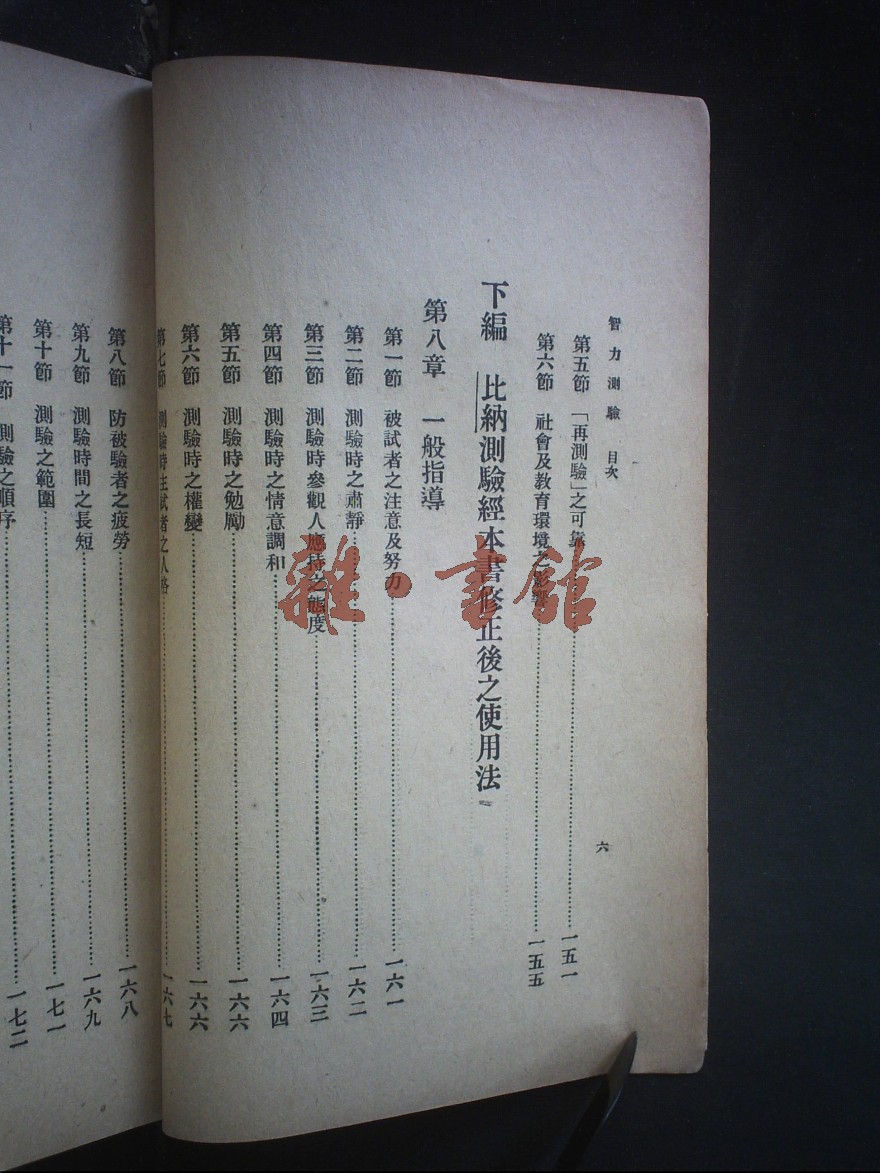 智力測驗 目次
六
第五節 「再測驗」之可靠 一五一
第六節 社會及教育環境之影響 一五五
下編 比納測驗經本書修正後之使用法
第八章 一般指導
第一節 被試者之注意及努力 一六一
第二節 測驗時之肅靜 一六二
第三節 測驗時參觀人應持之態度 一六三
第四節 測驗時之情意調和 一六四
第五節 測驗時之勉勵 一六六
第六節 測驗時之權變 一六六
第七節 測驗時主試者之人格 一六七
第八節 防被驗者之疲勞 一六八
第九節 測驗時間之長短 一六九
第十節 測驗之範圍 一七一
第十一節 測驗之順序 一七二
雜·書館